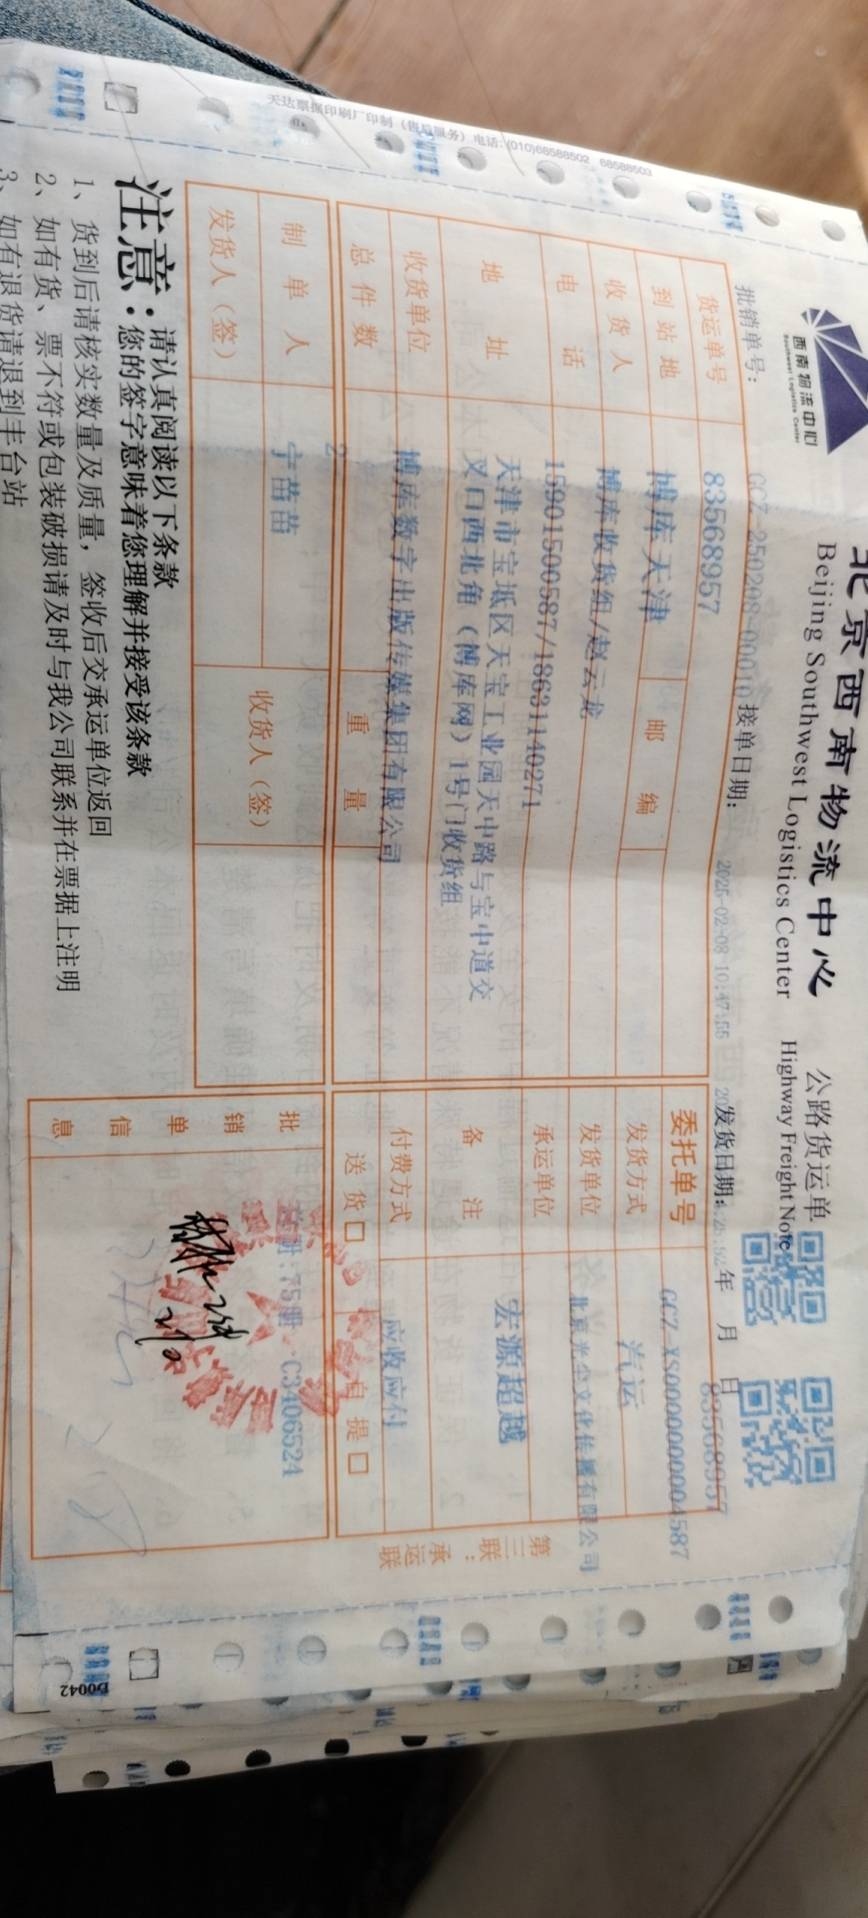 天达票据印刷厂印制（售后服务）电话:(010)68588502 68588503
西南物流中心
Southwest Logistics Center
北京西南物流中心 公路货运单
Beijing Southwest Logistics Center Highway Freight Note
批销单号: GCZ-250208-00010 接单日期: 2025-02-08 10:47:55 发货日期: 年 月 日
83568957
货运单号 83568957 委托单号 GCZ-XS0000000004587
到站地 博库天津 邮编 发货方式 汽运
收货人 博库收货组/赵云龙 发货单位 北京光尘文化传播有限公司
电话 15901500587/18631140271 承运单位 宏源超越
地址 天津市宝坻区天宝工业园天中路与宝中道交
叉口西北角（博库网）1号门收货组 备注
收货单位 博库数字出版传媒集团有限公司 付费方式 应收应付
总件数 2 重量 送货□ 自提□
制单人 宁苗苗 收货人（签）
发货人（签）
批销单信息 :75册. C3406524
第三联：承运联
注意：请认真阅读以下条款
您的签字意味着您理解并接受该条款
1、货到后请核实数量及质量，签收后交承运单位返回
2、如有货、票不符或包装破损请及时与我公司联系并在票据上注明
3、如有退货请退到丰台站
D0042